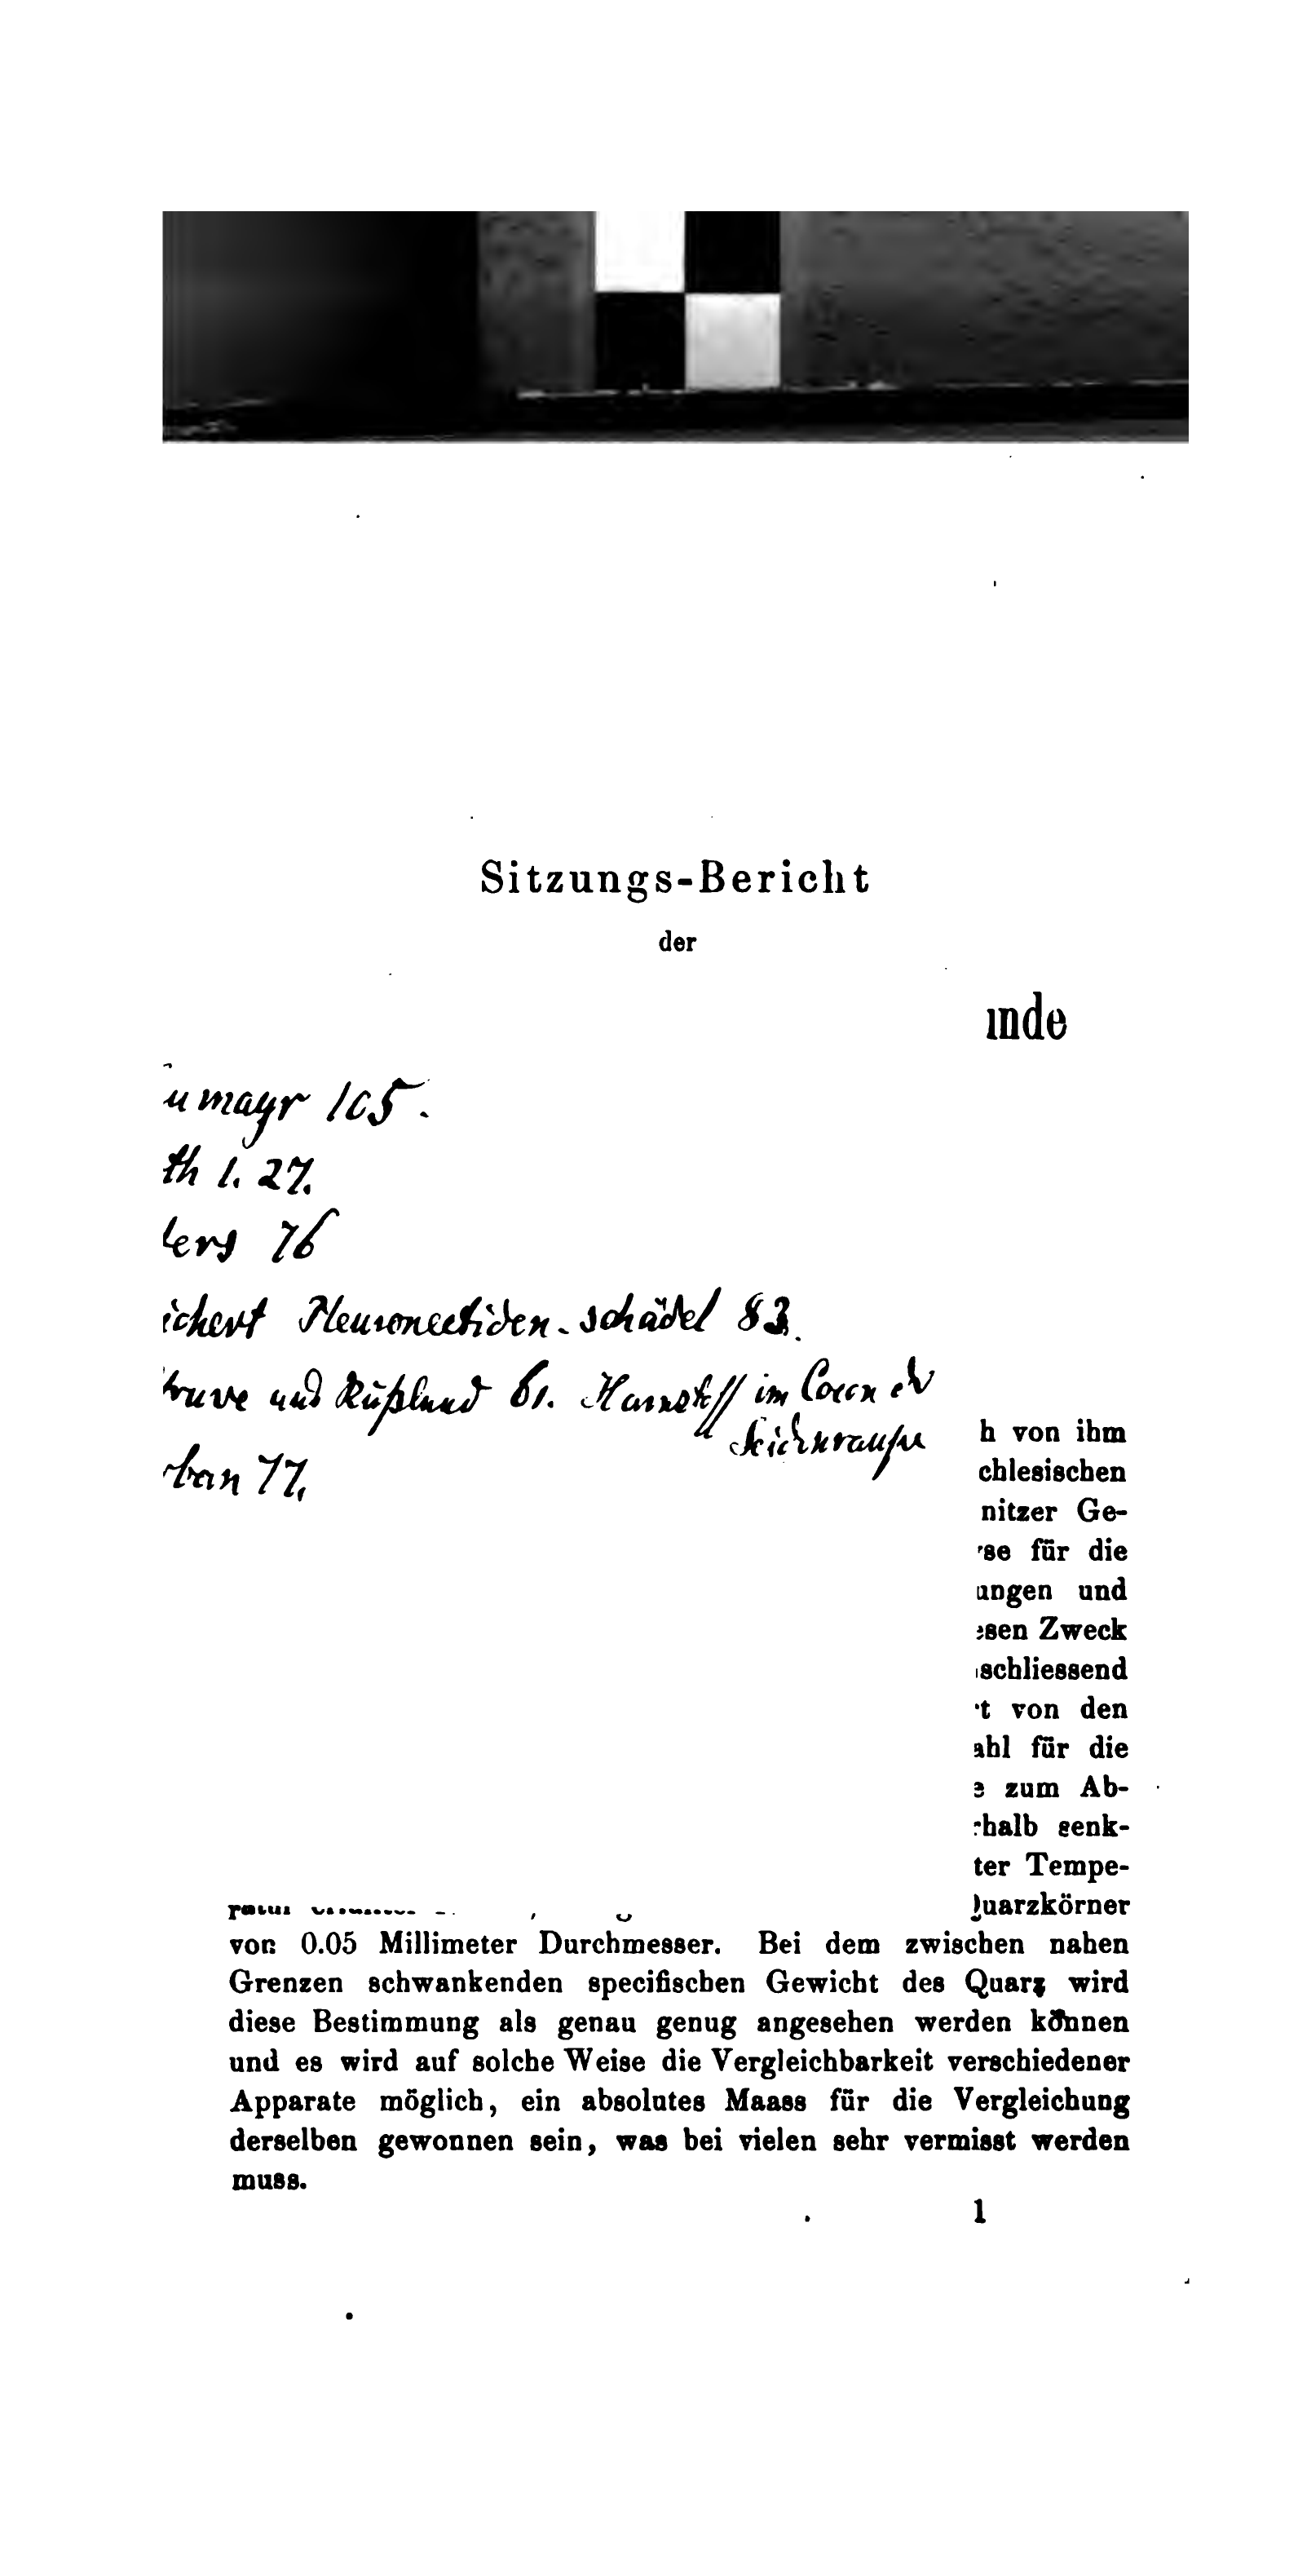 Sitzungs-Bericht
der
unde
umayr 105.
th 1. 27.
ters 76
ichert Pleuronectiden-schädel 83.
truve und Rußland 61. Harnstoff im Cocon der
Seidenraupe
rban 77.
h von ihm
chlesischen
nitzer Ge-
rse für die
ungen und
esen Zweck
schliessend
t von den
ahl für die
e zum Ab-
rhalb senk-
ter Tempe-
Quarzkörner
von 0.05 Millimeter Durchmesser. Bei dem zwischen nahen
Grenzen schwankenden specifischen Gewicht des Quarz wird
diese Bestimmung als genau genug angesehen werden können
und es wird auf solche Weise die Vergleichbarkeit verschiedener
Apparate möglich, ein absolutes Maass für die Vergleichung
derselben gewonnen sein, was bei vielen sehr vermisst werden
muss.
1